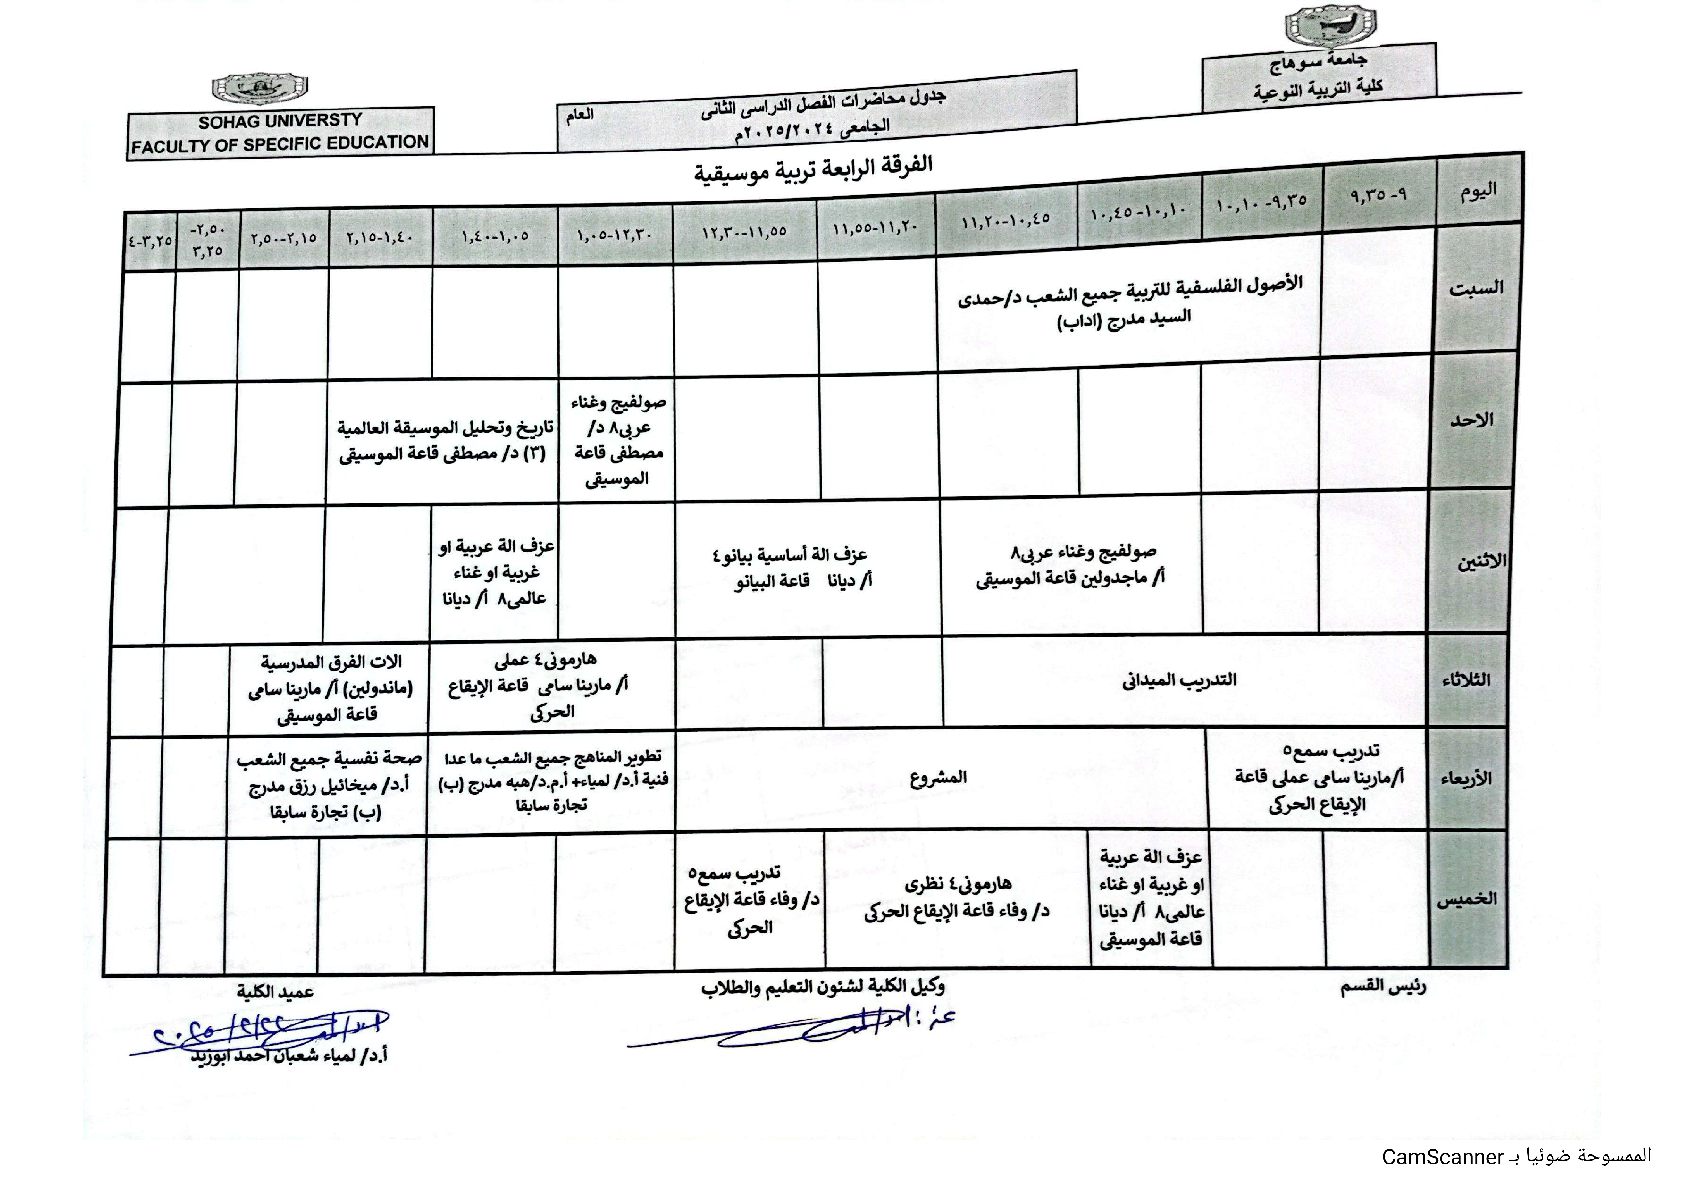 جامعة سوهاج
كلية التربية النوعية
جدول محاضرات الفصل الدراسى الثانى العام
الجامعى ٢٠٢٥/٢٠٢٤م
SOHAG UNIVERSTY
FACULTY OF SPECIFIC EDUCATION
الفرقة الرابعة تربية موسيقية
اليوم
٩- ٩,٣٥
٩,٣٥- ١٠,١٠
١٠,١٠-١٠,٤٥
١٠,٤٥-١١,٢٠
١١,٢٠-١١,٥٥
١١,٥٥-١٢,٣٠
١٢,٣٠-١,٠٥
١,٠٥-١,٤٠
١,٤٠-٢,١٥
٢,١٥-٢,٥٠
٢,٥٠-
٣,٢٥
٣,٢٥-٤
السبت
الأصول الفلسفية للتربية جميع الشعب د/حمدى
السيد مدرج (اداب)
الاحد
صولفيج وغناء
عربى٨ د/
مصطفى قاعة
الموسيقى
تاريخ وتحليل الموسيقة العالمية
(٣) د/ مصطفى قاعة الموسيقى
الاثنين
صولفيج وغناء عربى٨
أ/ ماجدولين قاعة الموسيقى
عزف الة أساسية بيانو٤
أ/ ديانا قاعة البيانو
عزف الة عربية او
غربية او غناء
عالمى٨ أ/ ديانا
الثلاثاء
التدريب الميدانى
هارمونى٤ عملى
أ/ مارينا سامى قاعة الإيقاع
الحركى
الات الفرق المدرسية
(ماندولين) أ/ مارينا سامى
قاعة الموسيقى
الأربعاء
تدريب سمع٥
أ/مارينا سامى عملى قاعة
الإيقاع الحركى
المشروع
تطوير المناهج جميع الشعب ما عدا
فنية أ.د/ لمياء+ أ.م.د/هبه مدرج (ب)
تجارة سابقا
صحة نفسية جميع الشعب
أ.د/ ميخائيل رزق مدرج
(ب) تجارة سابقا
الخميس
عزف الة عربية
او غربية او غناء
عالمى٨ أ/ ديانا
قاعة الموسيقى
هارمونى٤ نظرى
د/ وفاء قاعة الإيقاع الحركى
تدريب سمع٥
د/ وفاء قاعة الإيقاع
الحركى
رئيس القسم
وكيل الكلية لشئون التعليم والطلاب
عميد الكلية
أ.د/ لمياء شعبان احمد ابوزيد
الممسوحة ضوئيا بـ CamScanner